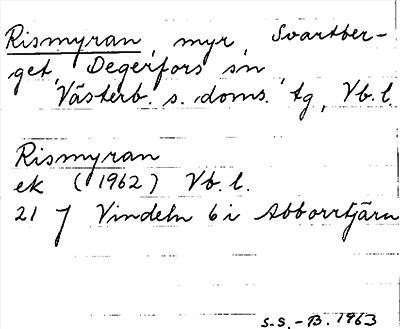 Rismyran, myr, Svartber-
get, Degerfors sn
Västerb. s. doms. tg, Vb. l.
Rismyran
ek (1962) Vb. l.
21 J Vindeln 6 i Abborrtjärn
S.S.-B. 1963